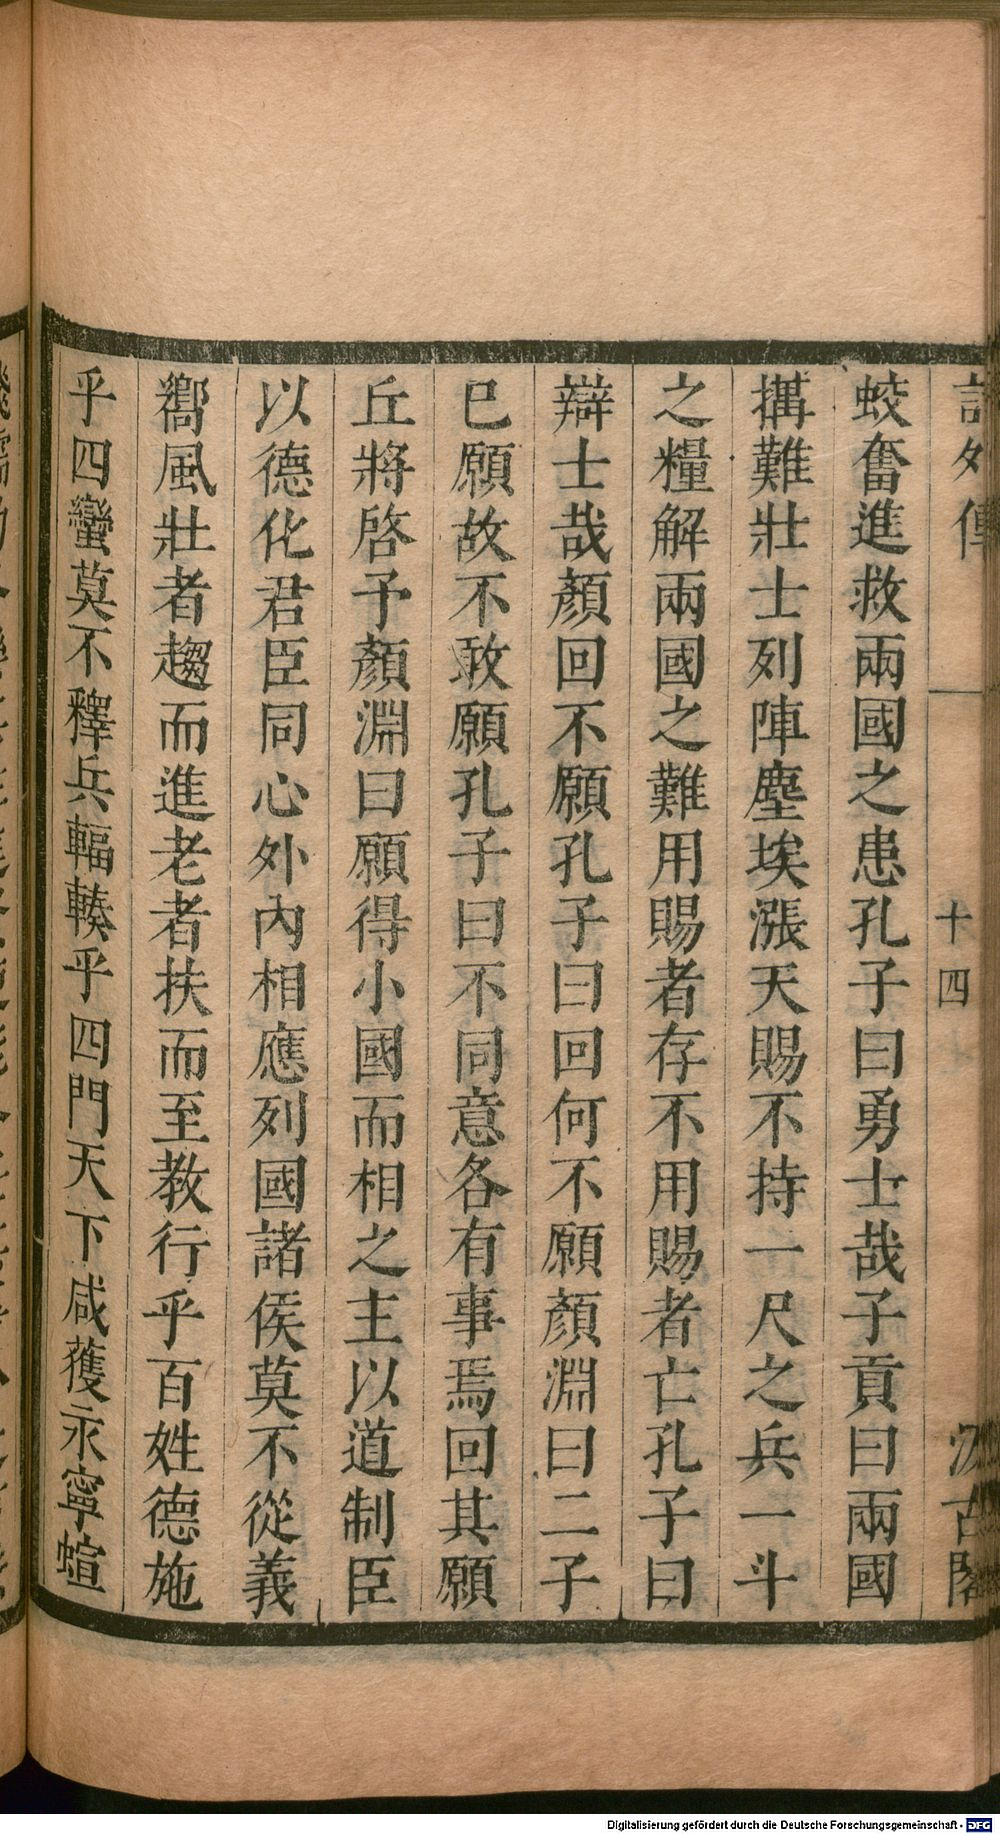 詩外傳
十四
汲古閣
蛟奮進救兩國之患孔子曰勇士哉子貢曰兩國
搆難壯士列陣塵埃漲天賜不持一尺之兵一斗
之糧解兩國之難用賜者存不用賜者亡孔子曰
辯士哉顏回不願孔子曰回何不願顏淵曰二子
已願故不敢願孔子曰不同意各有事焉回其願
丘將啓予顏淵曰願得小國而相之主以道制臣
以德化君臣同心外內相應列國諸侯莫不從義
嚮風壯者趨而進老者扶而至教行乎百姓德施
乎四蠻莫不釋兵輻輳乎四門天下咸獲永寧蝖
Digitalisierung gefördert durch die Deutsche Forschungsgemeinschaft - DFG